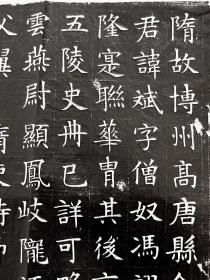 隋故博州高唐縣令
君諱斌字僧奴馮翊
隆寔聯華胄其後
五陵史冊已詳可略
雲燕尉顯鳳岐隴
翼隋使持